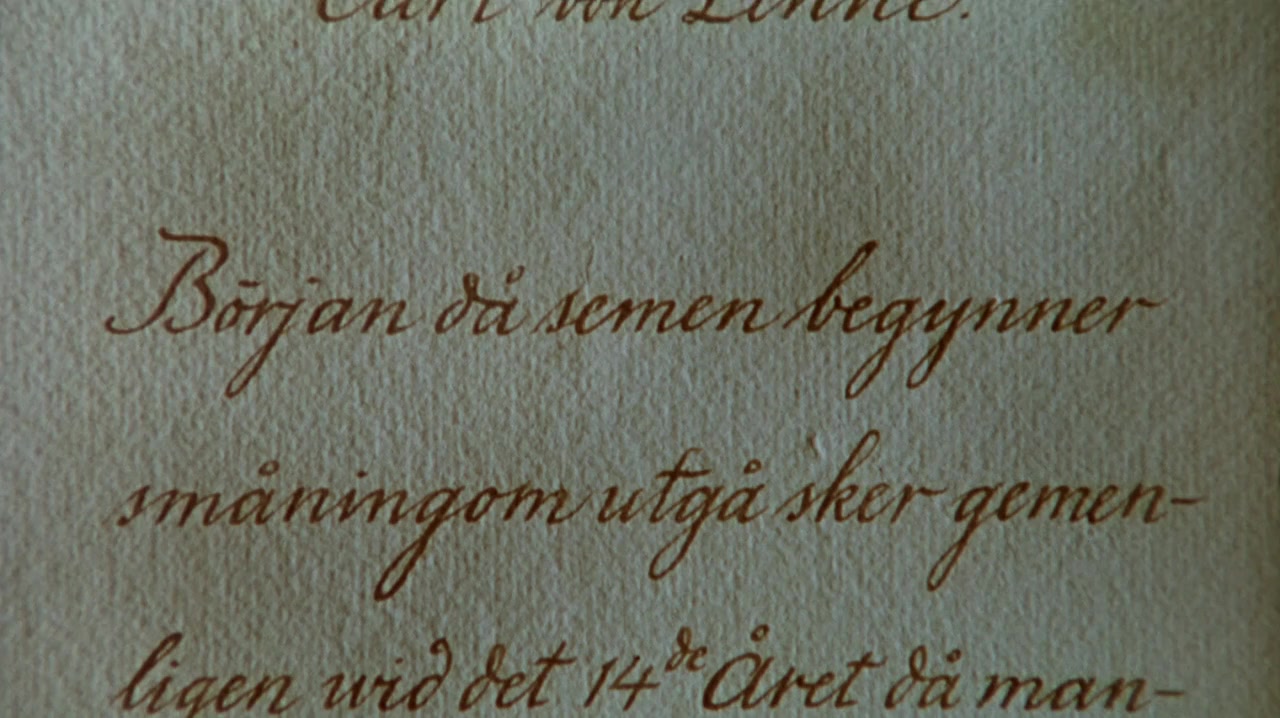 Carl von Linné.
Början då semen begynner
småningom utgå sker gemen-
ligen wid det 14de Året då man-